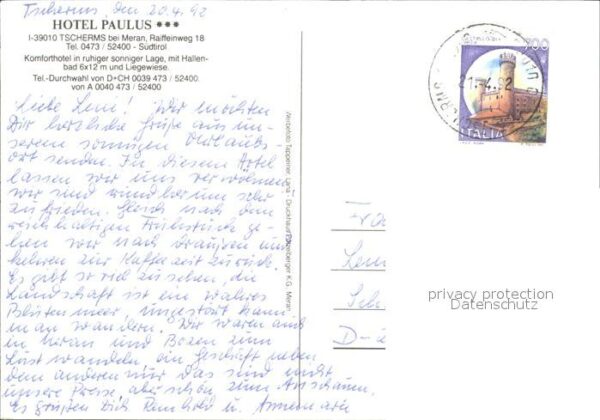 Tscherms, den 20.4.92
HOTEL PAULUS ***
I-39010 TSCHERMS bei Meran, Raiffeinweg 18
Tel. 0473 / 52400 - Südtirol
Komforthotel in ruhiger sonniger Lage, mit Hallen-
bad 6x12 m und Liegewiese.
Tel.-Durchwahl von D+CH 0039 473 / 52400
von A 0040 473 / 52400
Liebe Leni! Wir möchten
Dir herzliche Grüße aus un-
serem sonnigen Urlaubs-
ort senden. In diesem Hotel
lassen wir uns verwöhnen
wir sind wunderbar um sehr
zufrieden. Gleich nach dem
reichhaltigen Frühstück ge-
hen wir nach draußen und
kehren zur Kaffezeit zurück.
Es gibt so viel zu sehen, die
Landschaft ist ein wahres
Blütenmeer, ungestört kann
man wandern. Wir waren auch
in Meran und Bozen zum
Lustwandeln, ein Geschäft neben
dem anderen nur das sind nicht
unsere Preise, aber schön zum Anschauen.
Es grüßen Dich Reinhold u. Annemarie
Werbefoto Tappeiner Lana - Druckhaus Pötzelberger K.G. Meran
700
21.-4.92
ITALIA
Fra
Len
Sch
D-
privacy protection
Datenschutz